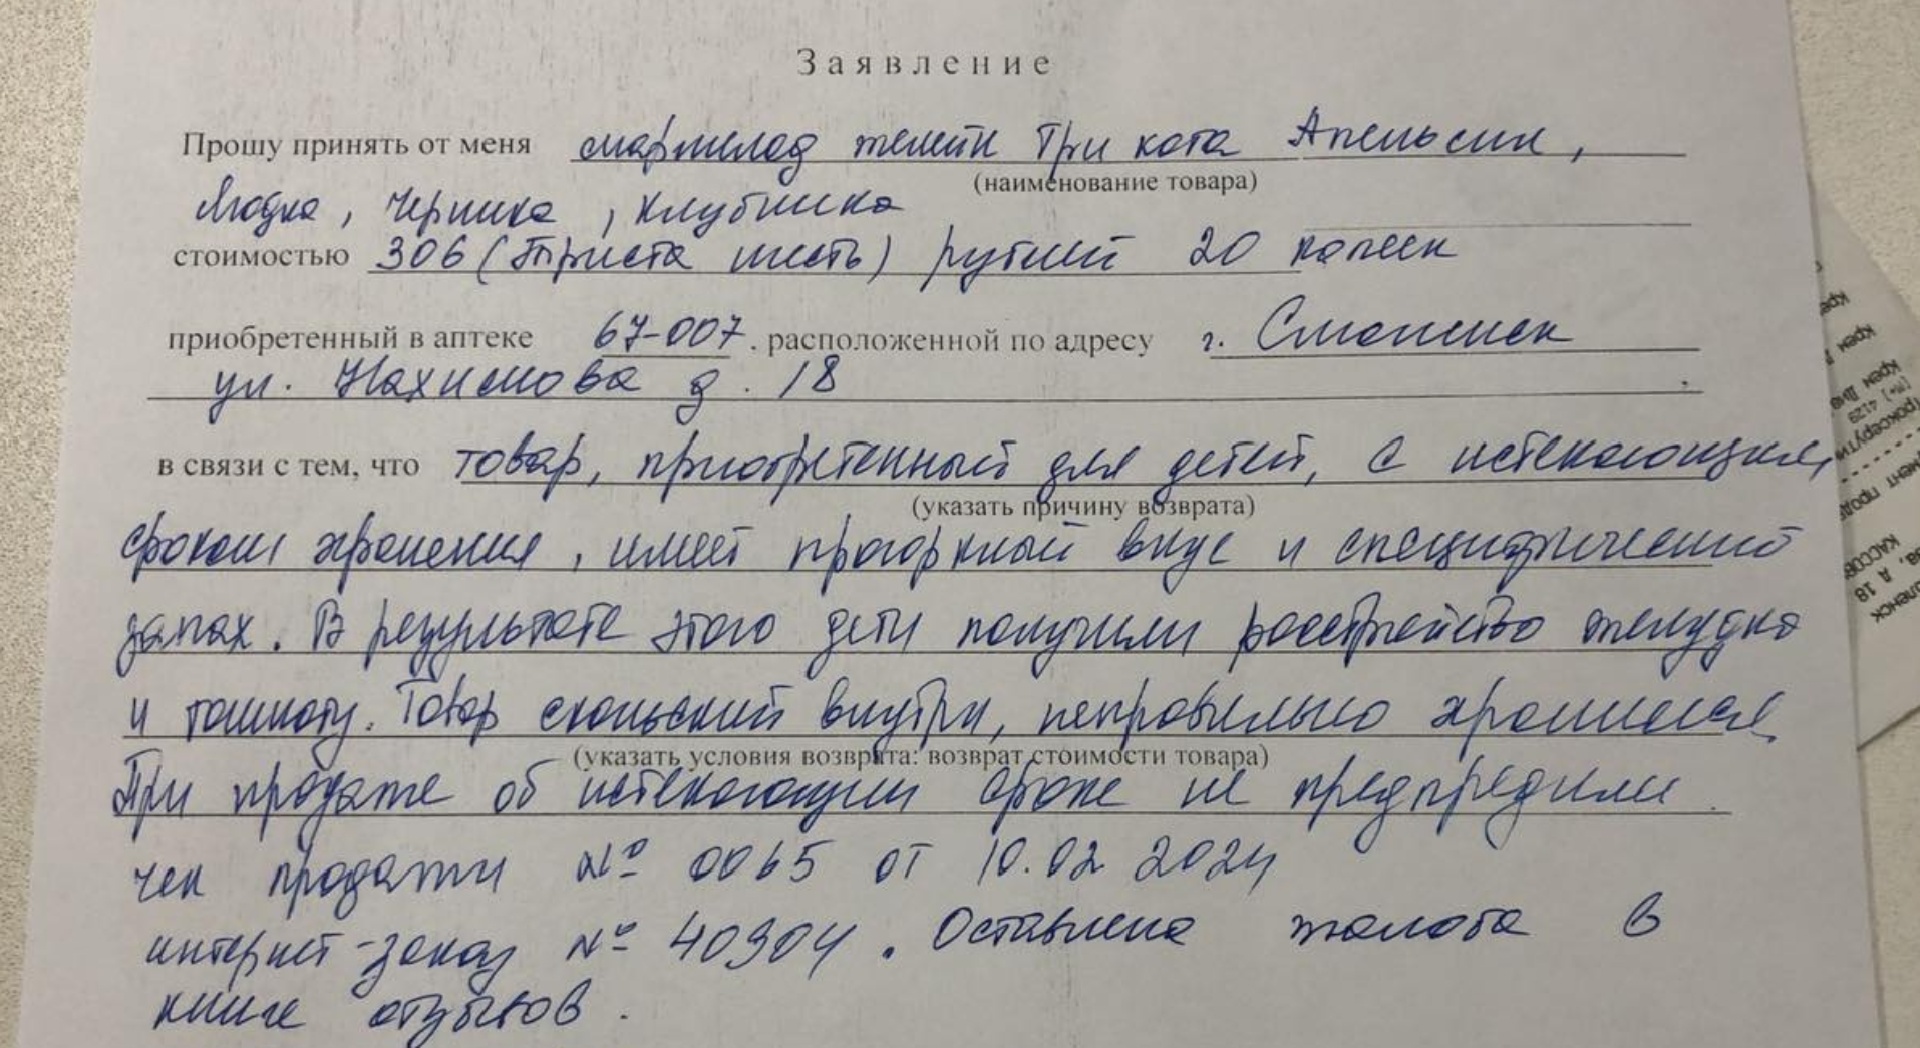 Заявление
Прошу принять от меня мармелад желейн Три кота Апельсин,
(наименование товара)
Ягодка, Черника, Клубника
стоимостью 306 (Триста шесть) рублей 20 копеек
приобретенный в аптеке 67-007, расположенной по адресу г. Смоленск
ул. Нахимова д. 18
в связи с тем, что товар, приобретенный для детей, с истекающим
(указать причину возврата)
сроком хранения, имеет прогорклый вкус и специфический
запах. В результате этого дети получили расстройство желудка
и тошноту. Товар скользкий внутри, неправильно хранился
(указать условия возврата: возврат стоимости товара)
При продаже об истекающем сроке не предупредили.
чек продажи № 0065 от 10.02 2024
интернет-заказ № 40904. Оставлена жалоба в
книге отзывов.